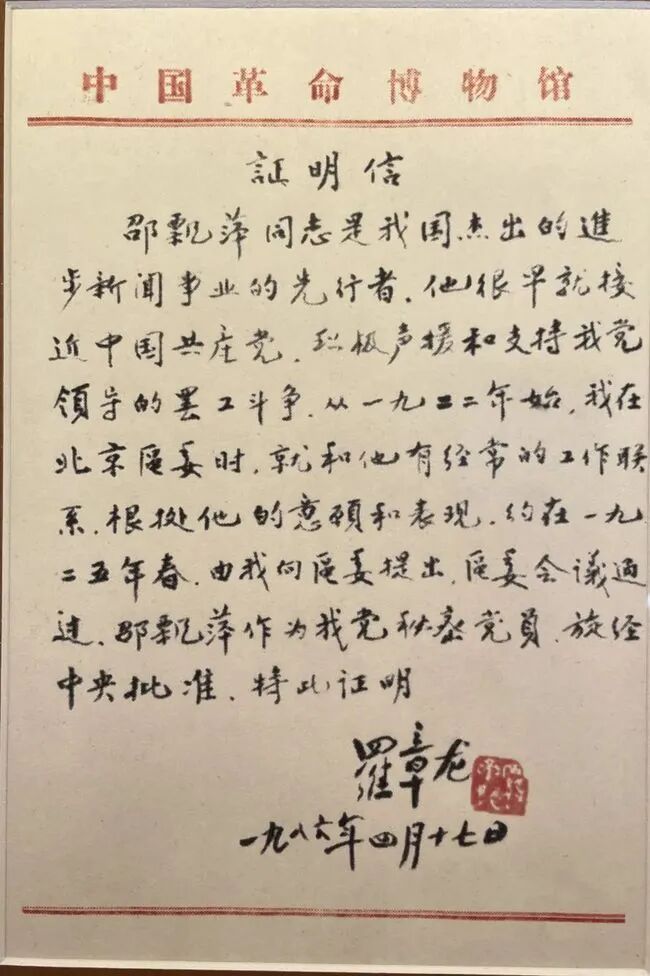 中国革命博物馆
証明信
邵飘萍同志是我国杰出的進
步新闻事业的先行者.他很早就接
近中国共产党.积极声援和支持我党
领导的罢工斗争.从一九二二年始.我在
北京區委时.就和他有经常的工作联
系.根据他的意愿和表现.约在一九
二五年春.由我向區委提出.區委会議通
过.邵飘萍作为我党秘密党员.旋经
中央批准.特此证明
羅章龙
一九八六年四月十七日